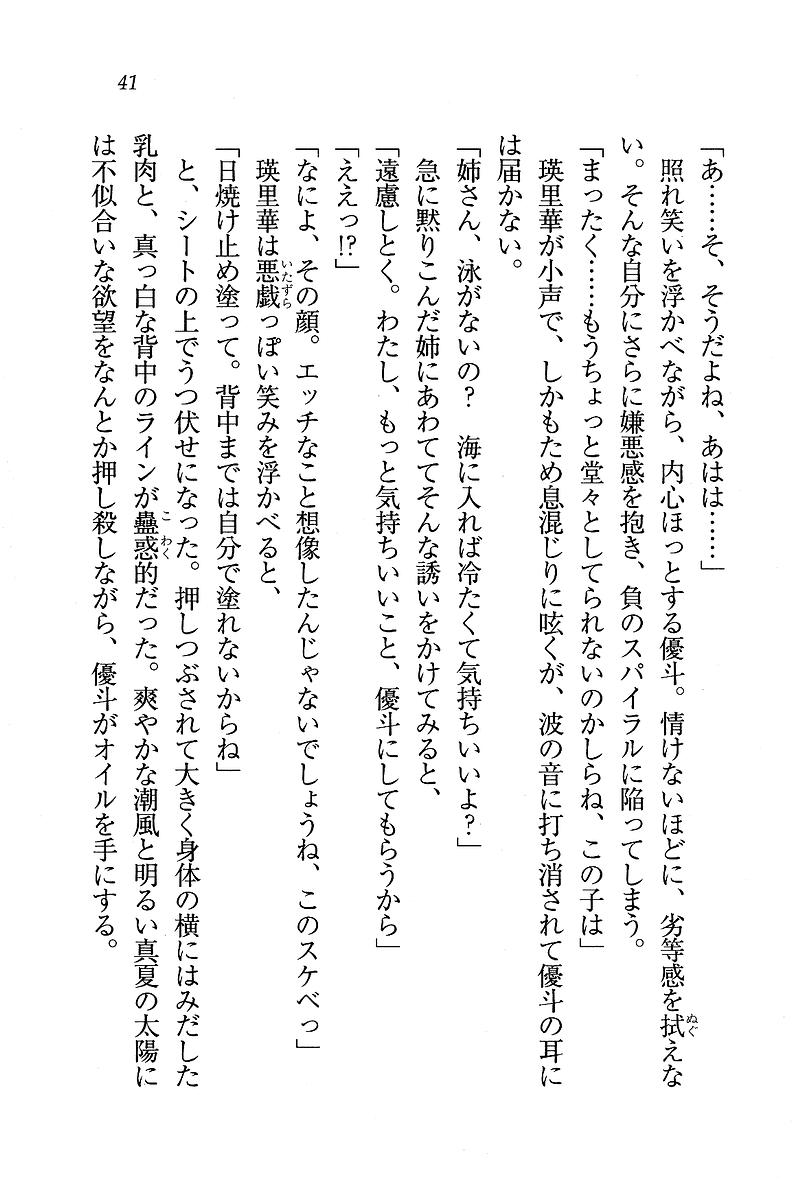 41
「あ……そ、そうだよね、あはは……」
　照れ笑いを浮かべながら、内心ほっとする優斗。情けないほどに、劣等感を拭えな
い。そんな自分にさらに嫌悪感を抱き、負のスパイラルに陥ってしまう。
「まったく……もうちょっと堂々としてられないのかしらね、この子は」
　瑛里華が小声で、しかもため息混じりに呟くが、波の音に打ち消されて優斗の耳に
は届かない。
「姉さん、泳がないの？　海に入れば冷たくて気持ちいいよ？」
　急に黙りこんだ姉にあわててそんな誘いをかけてみると、
「遠慮しとく。わたし、もっと気持ちいいこと、優斗にしてもらうから」
「ええっ!?」
「なによ、その顔。エッチなこと想像したんじゃないでしょうね、このスケベっ」
　瑛里華は悪戯っぽい笑みを浮かべると、
「日焼け止め塗って。背中までは自分で塗れないからね」
　と、シートの上でうつ伏せになった。押しつぶされて大きく身体の横にはみだした
乳肉と、真っ白な背中のラインが蠱惑的だった。爽やかな潮風と明るい真夏の太陽に
は不似合いな欲望をなんとか押し殺しながら、優斗がオイルを手にする。
ぬぐ
いたずら
こわく